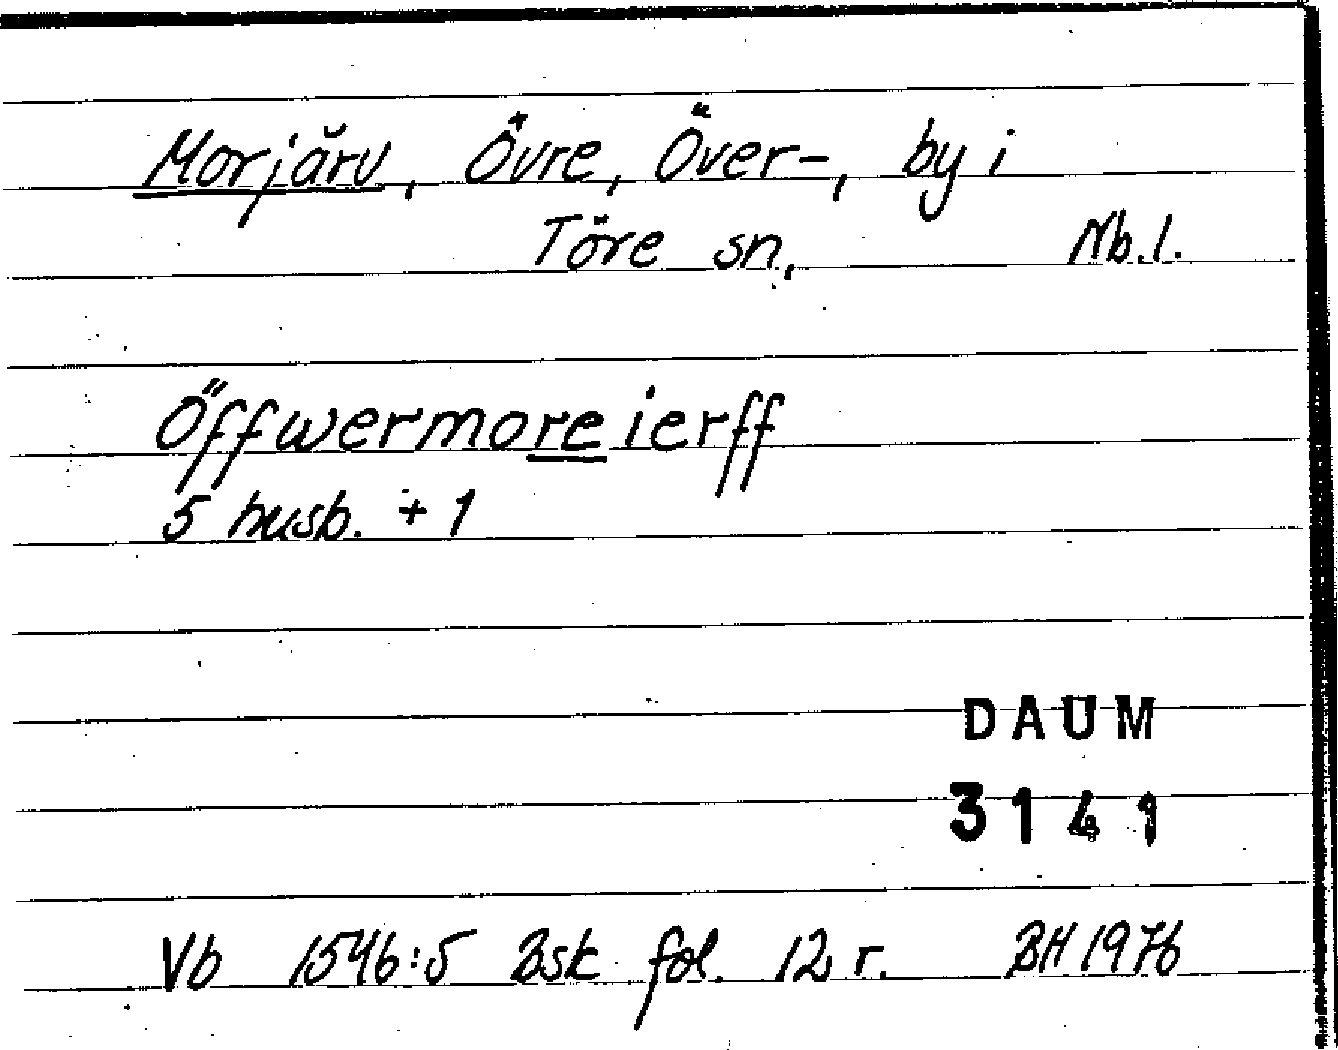 Morjärv, Övre, Över-, by i
Töre sn, Nb.l.
Öffwermoreierff
5 husb. + 1
DAUM
3141
Vb 1546:5 Bsk fol. 12 r. BH 1976